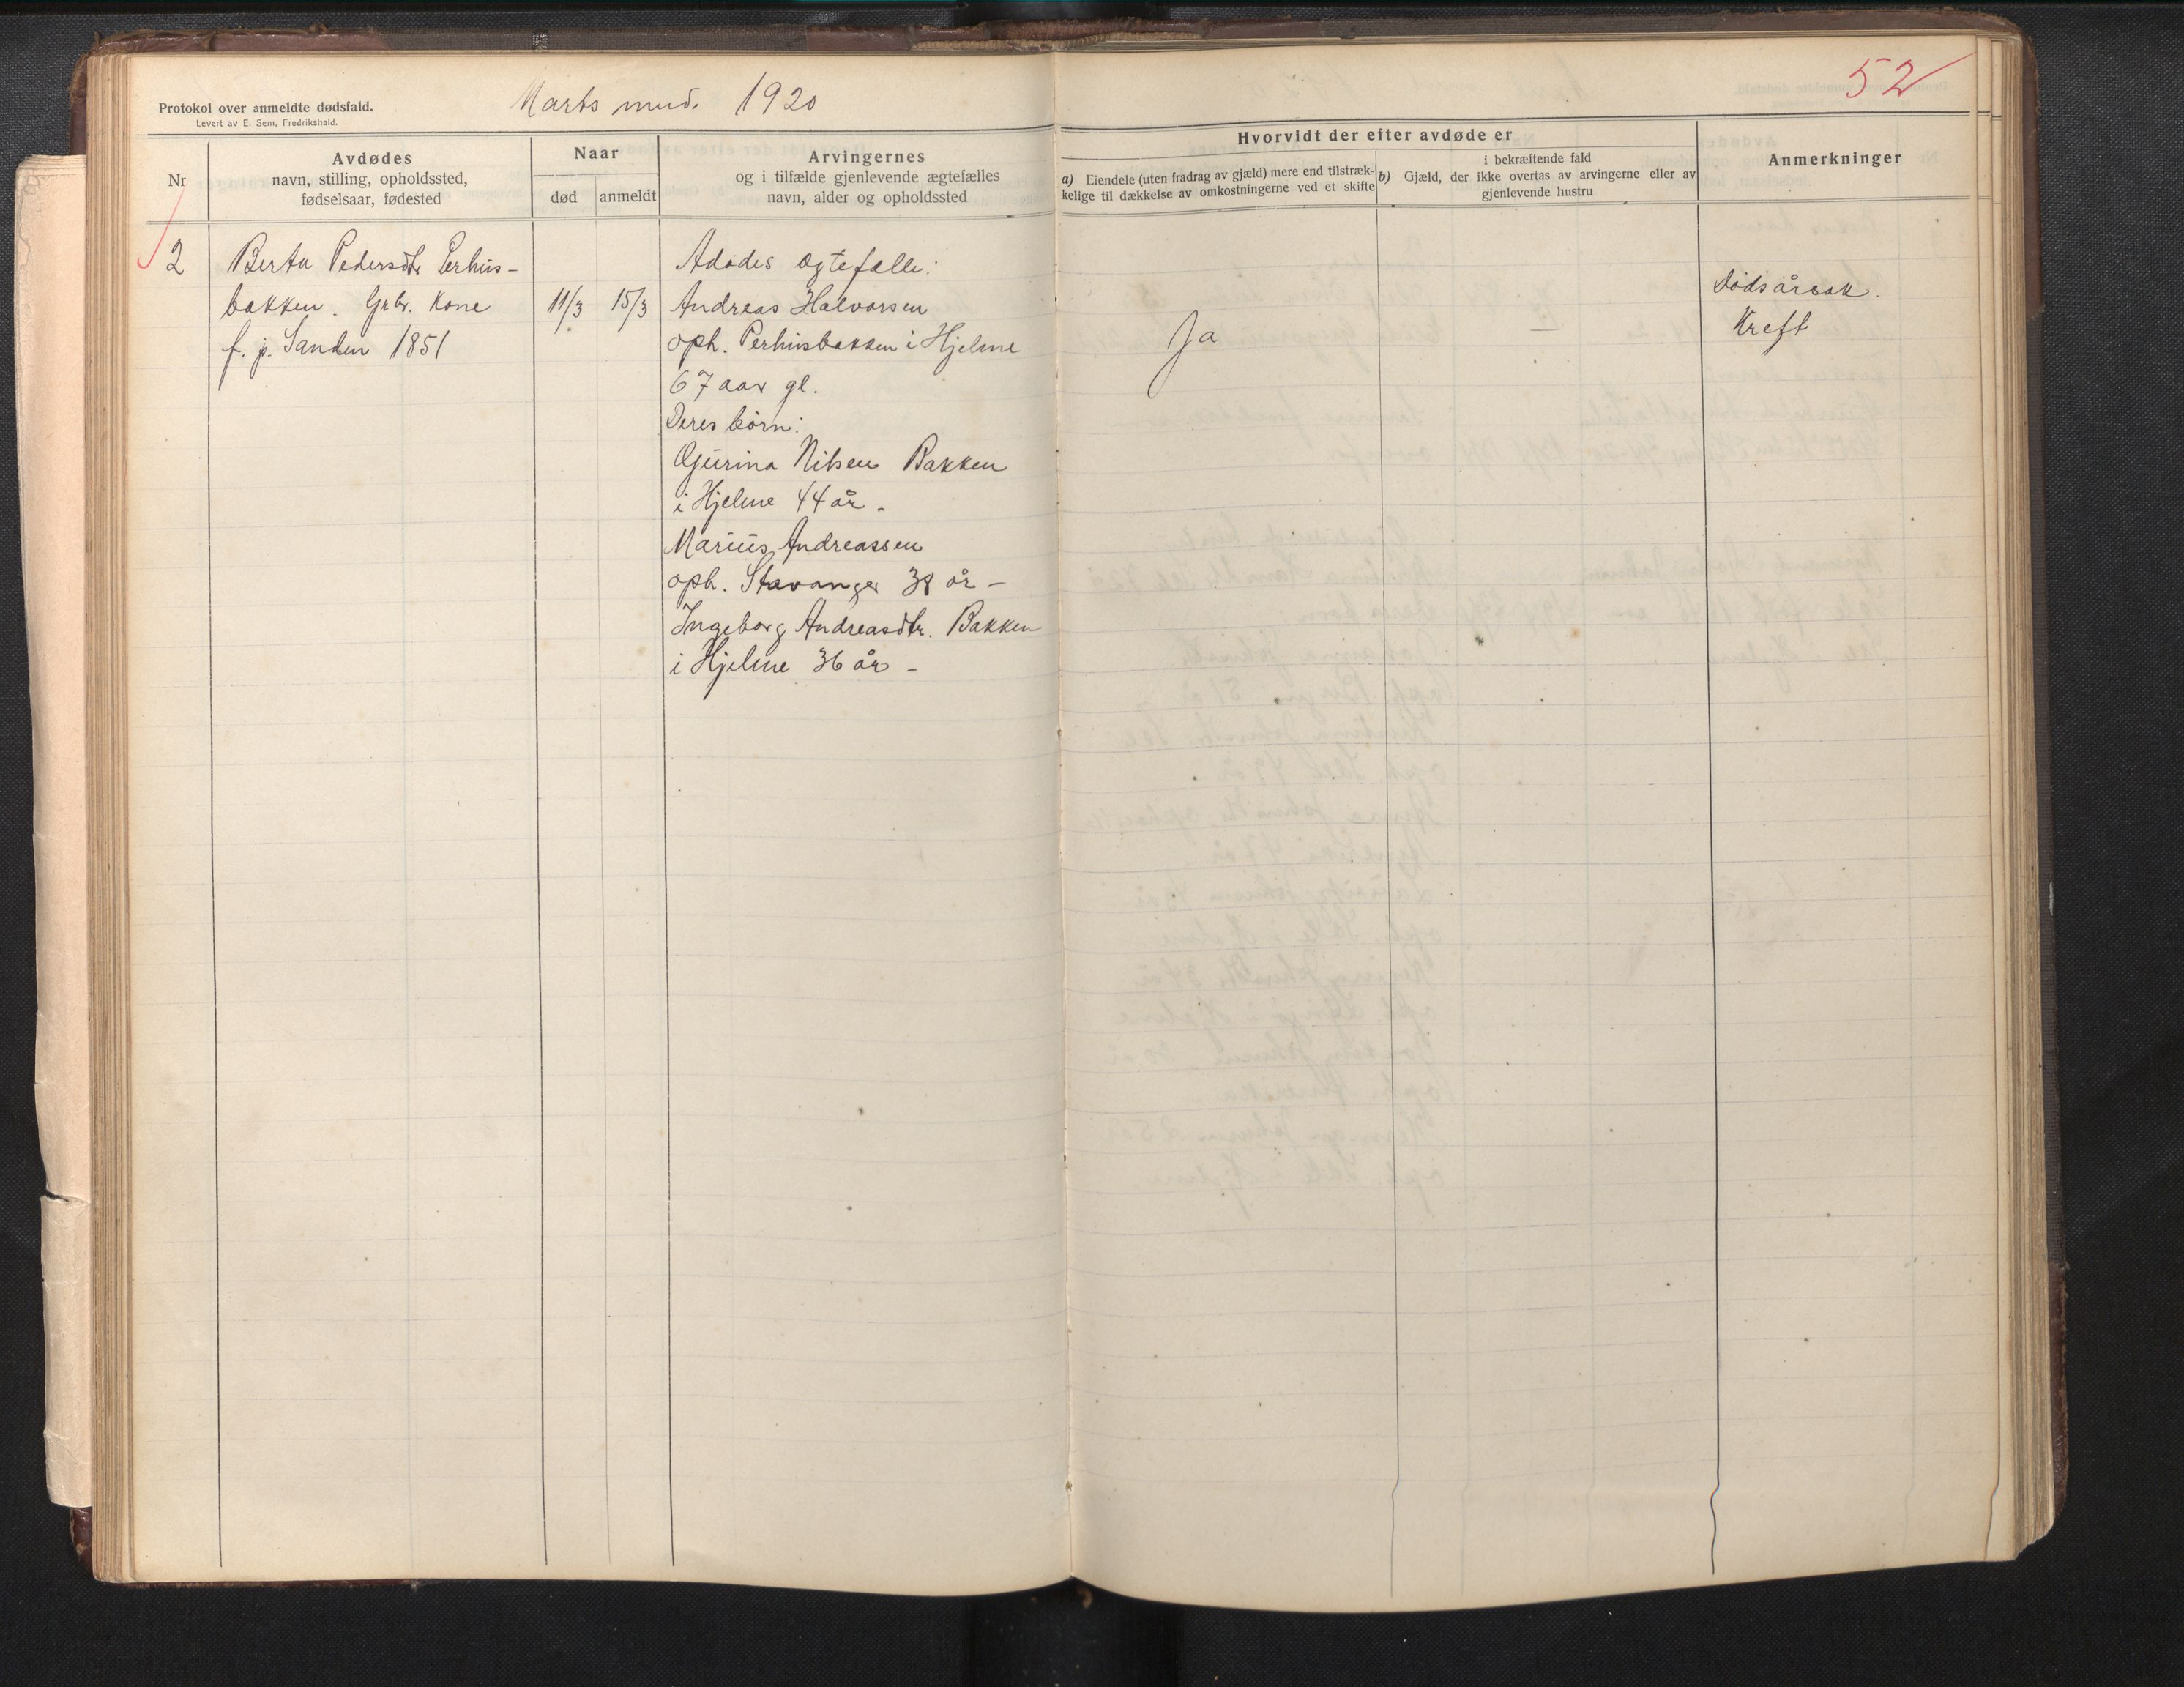 52
Protokol over anmeldte dødsfald.
Levert av E. Sem, Fredrikshald.
Marts mnd. 1920
Nr
Avdødes
navn, stilling, opholdssted,
fødselsaar, fødested
Naar
død
anmeldt
Arvingernes
og i tilfælde gjenlevende ægtefælles
navn, alder og opholdssted
Hvorvidt der efter avdøde er
a) Eiendele (uten fradrag av gjæld) mere end tilstræk-
kelige til dækkelse av omkostningerne ved et skifte
b) Gjæld, der ikke overtas av arvingerne eller av
i bekræftende fald
gjenlevende hustru
Anmerkninger
2
Berta Pedersdtr Perhus-
bakken. Grbr. Kone
f. p. Sanden 1851
11/3
15/3
Adødes ægtefælle:
Andreas Halvorsen
oph. Perhusbakken i Hjelme
67 aar gl.
Deres børn:
Gjurina Nilsen Bakken
i Hjelme 44 år -
Marius Andreassen
oph. Stavanger 38 år -
Ingeborg Andreasdtr. Bakken
i Hjelme 36 år -
Ja
—
Dødsårsak.
Kreft